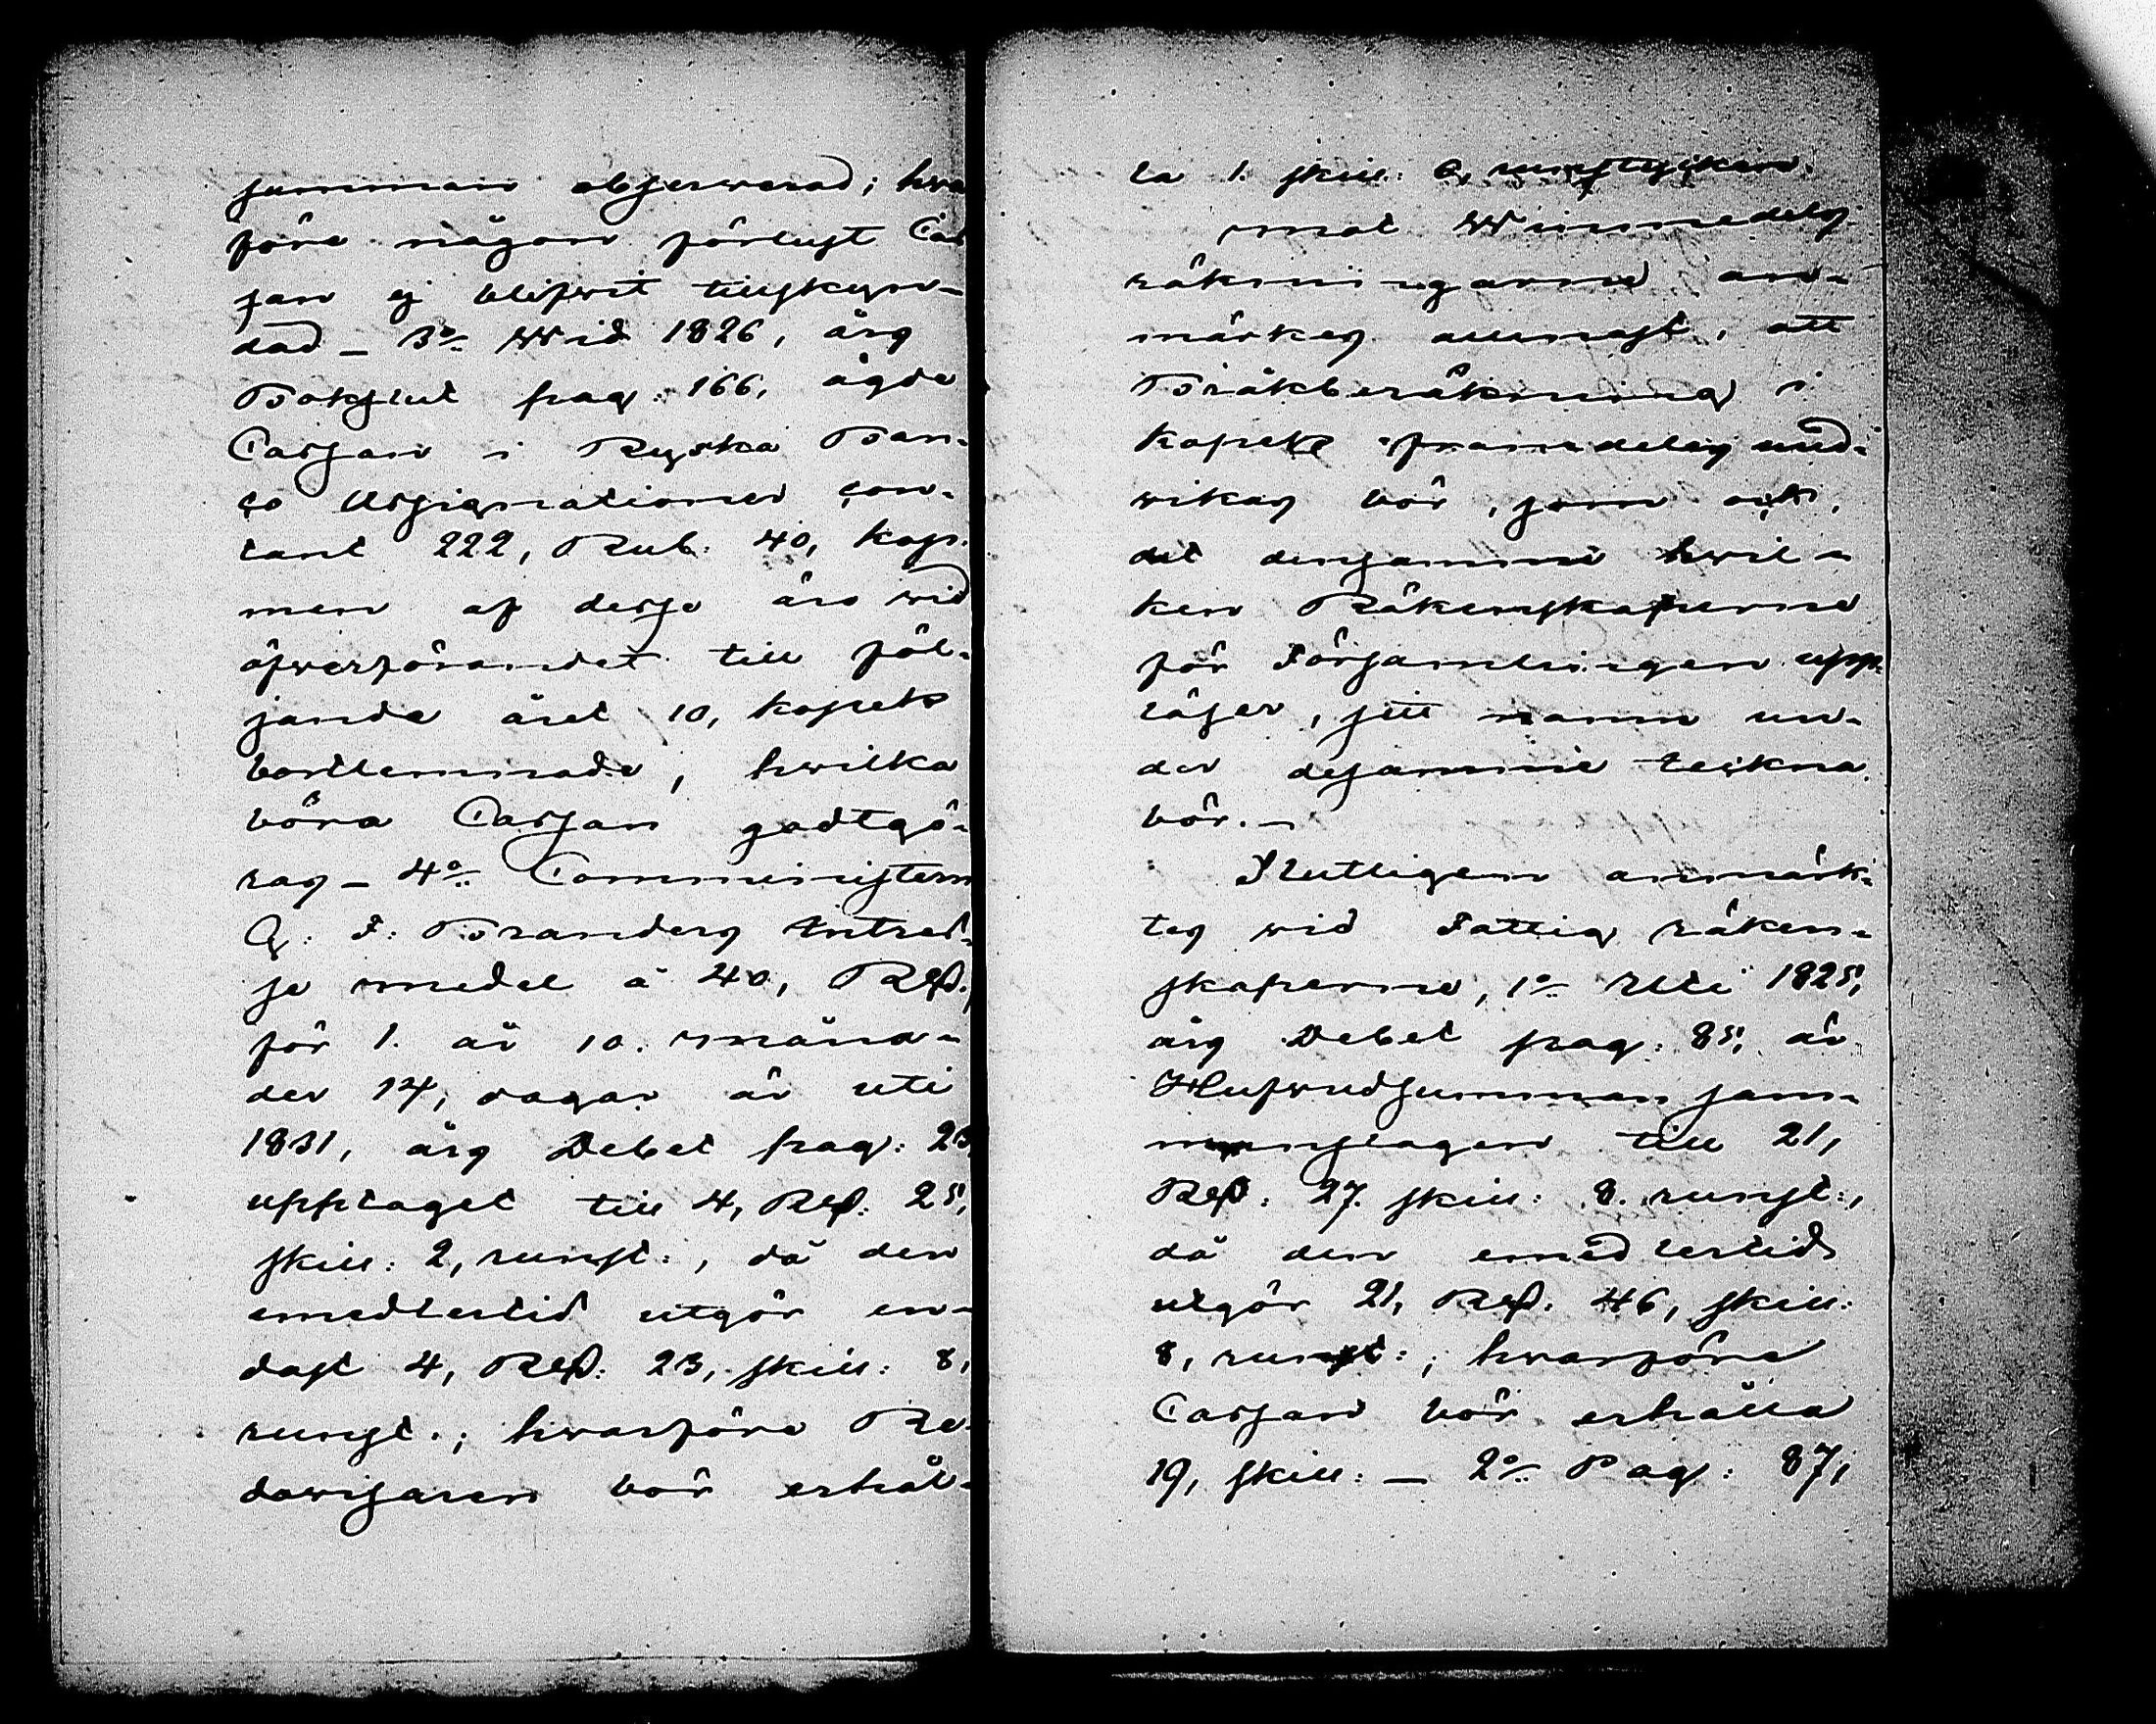 summan observerad; hva
före någon förlust Cas
san ej blifvit tillskyn-
dad – 3:o Wid 1826, års
Bokslut pag: 166, ägde
Cassan i Ryska Ban-
co Assignationer con-
tant 222, Rub: 40, kop:
men af desse äro wid
öfverförandet till föl-
jande året 10, kopek
bortlemnade, hwilka
böra Cassan godtgö-
ras – 4:o Comministern
G: F: Branders Intres-
se medel à 40, Rd.
för 1. år 10. måna-
der 14, dagar är uti
1831, års Debet pag: 23,
upptaget till 4, Rd: 25,
skill: 2, runst:, då den
emedlertid utgör en-
dast 4, Rd: 23, skill: 8,
runst.; hvarföre Re-
dovisaren bör erhål-
la 1. skill: 6, runstycken.
mot Winmedels
räkningarne an-
märkes allenast, att
Bråkberäkning i
Kopek framdeles und-
vikas bör, som ock,
det densamme hvil-
ken Räkenskaperne
för Församlingen upp-
läser, sitt namn un-
der desamme teckna
bör. –
Slutligen anmärk-
tes wid Fattig räken-
skaperne, 1:o Uti 1825,
års Debet pag: 85, är
Hufvudsumman sam-
manslagen till 21,
Rd: 27. skill: 8. runst:,
då den emedlertid
utgör 21, Rd: 46, skill:
8, runst:; hvarföre
Cassan bör erhålla
19, skill: – 2:o Pag: 87,